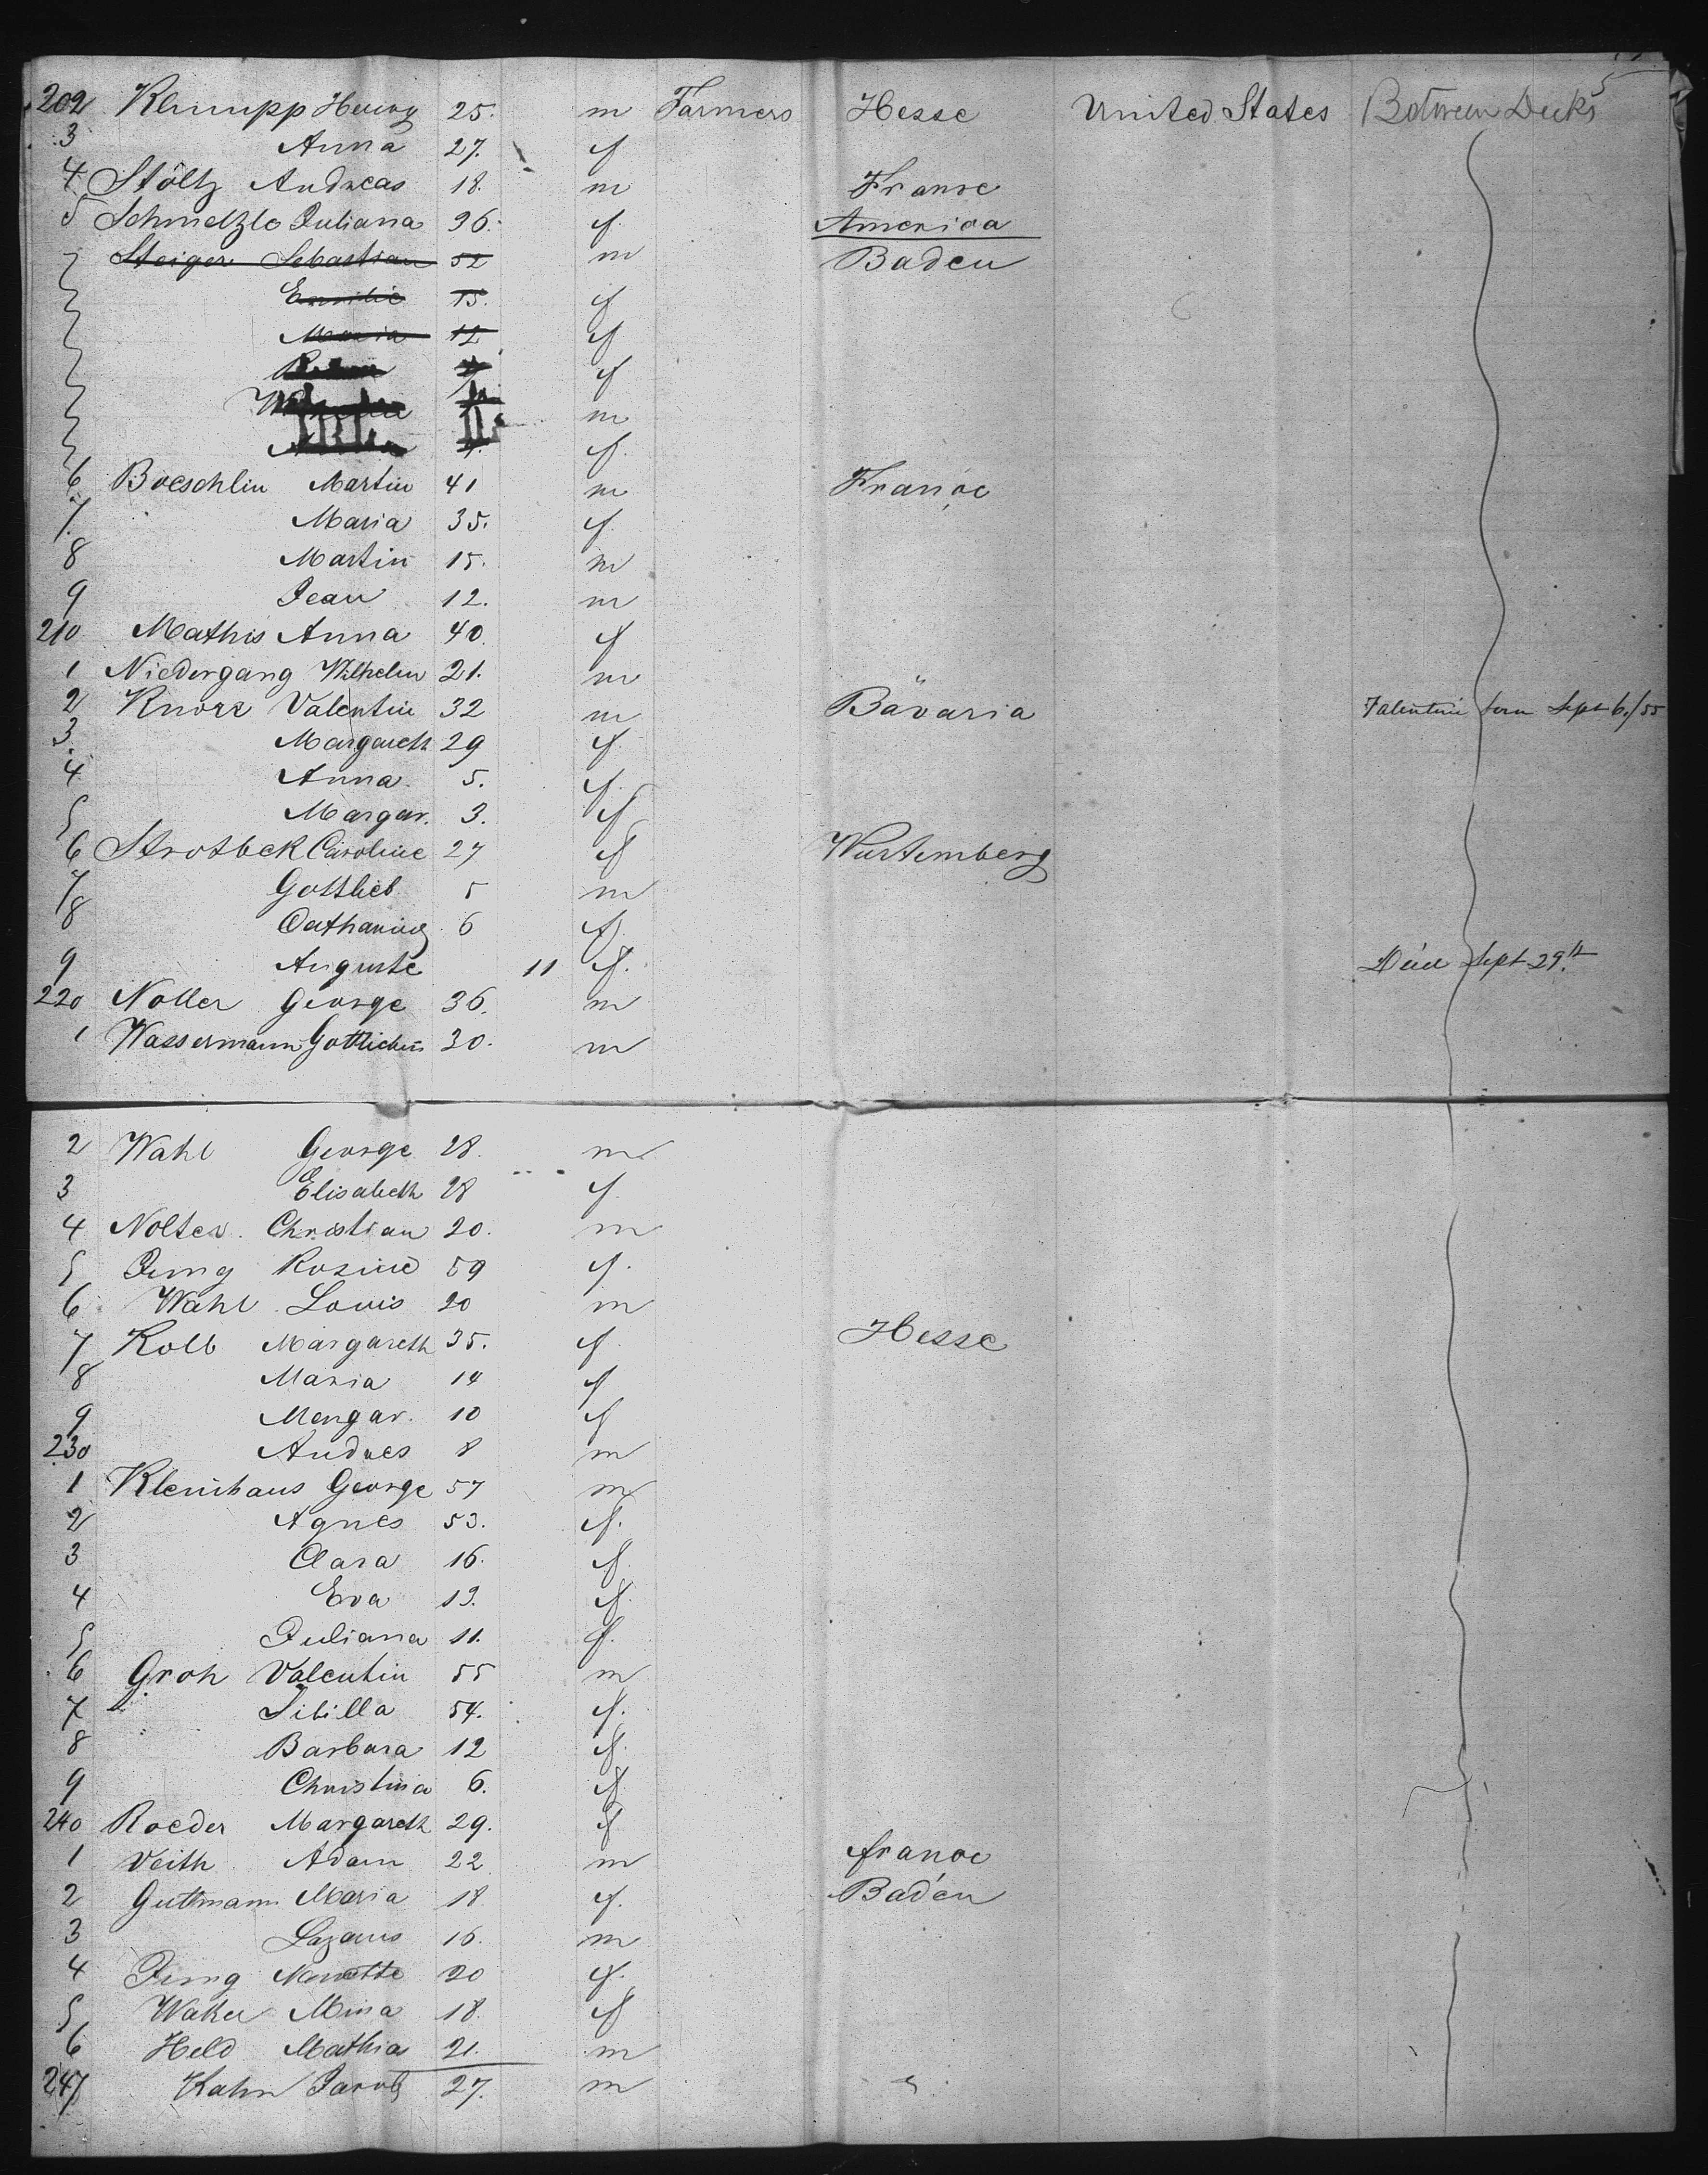 202 Klumpp Henry 25. m Farmers Hesse United States Between Decks
3 Anna 27. f
4 Stöltz Andreas 18. m France
5 Schmelzle Juliana 36. f. America
Steiger Sebastian 52 m Baden
Emilie 15. f
Maria 12 f
f
m
f.
6 Boeschlin Martin 41 m France
7. Maria 35. f.
8 Martin 15. m
9 Jean 12. m
210 Mathis Anna 40. f
1 Niedergang Wilhelm 21. m
2 Knorz Valentin 32 m Bavaria Valentin born Sept 6./55
3. Margareth 29 f.
4 Anna 5. f.
5 Margar. 3. f
6 Strotbek Caroline 27 f Wurtemberg
7 Gottlieb 5 m
8 Catharina 6 f.
9 Auguste 11 f. Died Sept 29th
220 Noller George 36. m
1 Wassermann 30. m
2 Wahl George 28. m
3 Elisabeth 28 f.
4 Nolter. Christian 20. m
5 Jung Rosine 59 f.
6 Wahl Louis 20 m
7 Kolb Margareth 35. f. Hesse
8 Maria 14 f
9 Mengar. 10 f
230 Andres 8 m
1 Kleinhaus George 57 m
2 Agnes 53. f.
3 Clara 16. f.
4 Eva 13. f.
5 Juliana 11. f.
6 Groh Valentin 55 m
7 Sibilla 54. f.
8 Barbara 12 f.
9 Christina 6. f
240 Roeder Margareth 29. f
1 Veith Adam 22 m france
2 Guttmann Maria 18. f. Baden
3 Lazarus 16. m
4 Jung Nanette 20 f.
5 Waker Mina 18. f
6 Held Mathia 21. m
247 Kahn Jacob 27. m